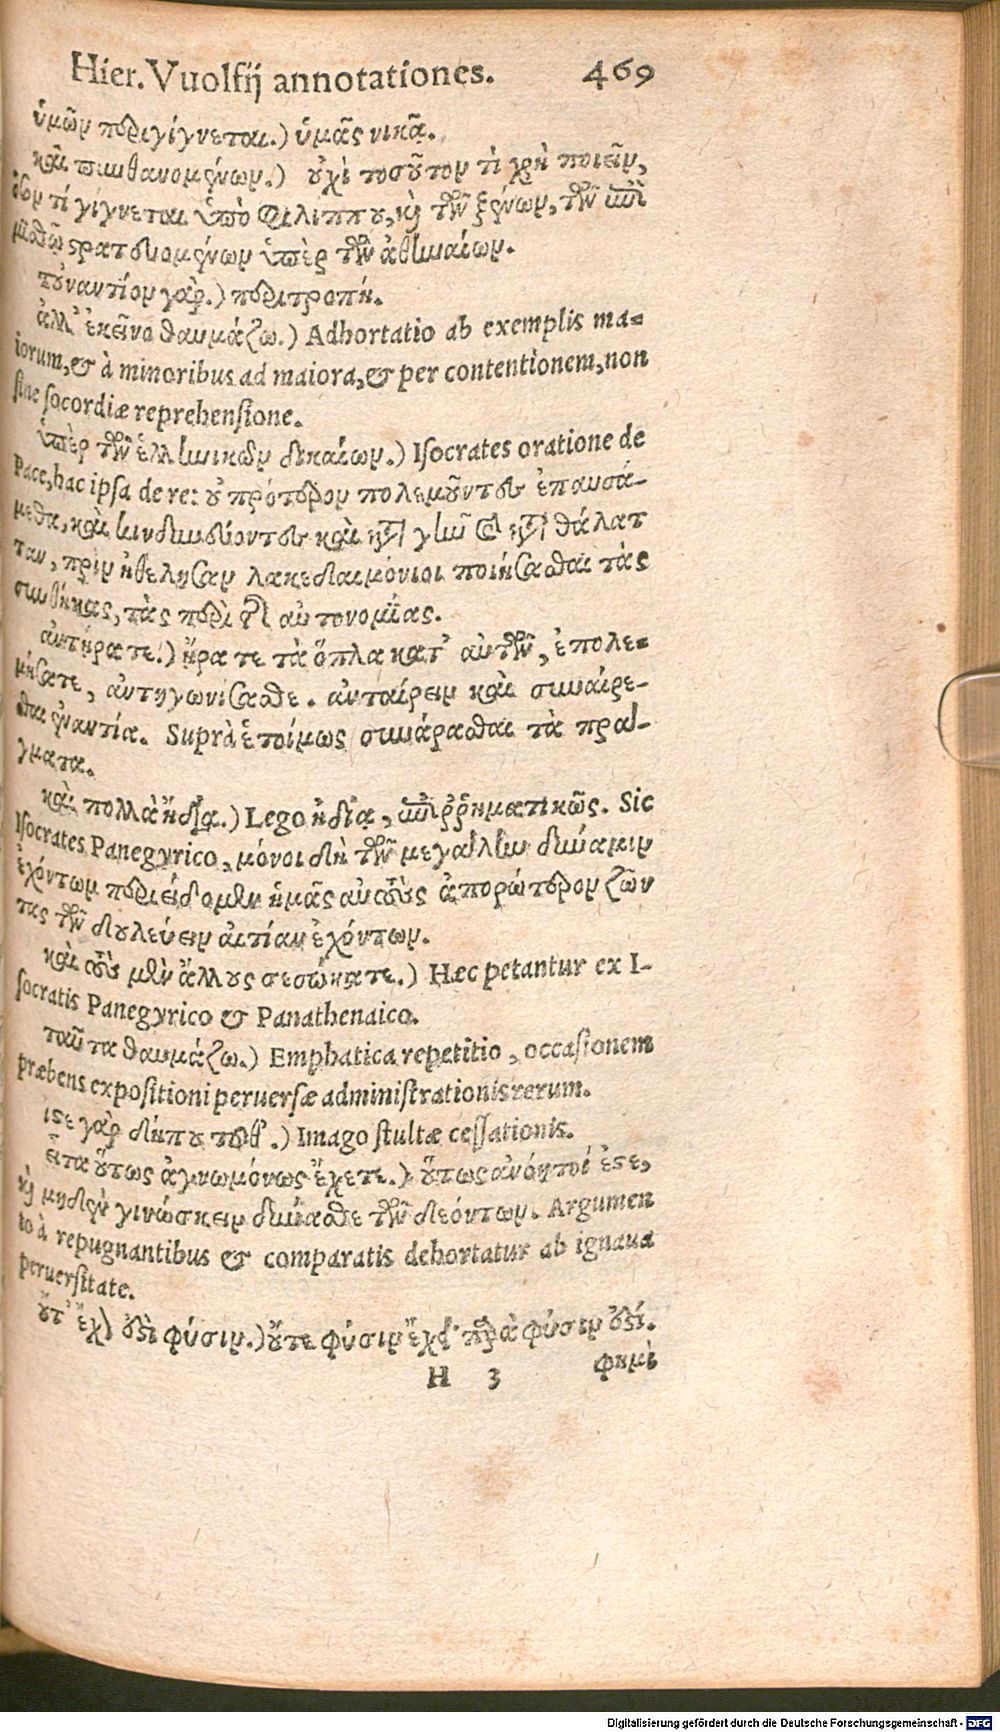 Hier. Vuolfij annotationes. 469
ὑμῶν περιγίγνεται.) ὑμᾶς νικᾷ.
καὶ πυνθανομένων.) οὐχὶ τοσοῦτον τί χρὴ ποιεῖν,
ὅσον τί γίγνεται ὑπὸ Φιλίππου, καὶ τῶν ξένων, τῶν ἐπὶ
μισθῷ στρατευομένων ὑπὲρ τῶν ἀθηναίων.
τοὐναντίον γάρ.) περιτροπή.
ἀλλ' ἐκεῖνο θαυμάζω.) Adhortatio ab exemplis ma=
iorum, & à minoribus ad maiora, & per contentionem, non
sine socordiæ reprehensione.
ὑπὲρ τῶν ἑλληνικῶν δικαίων.) Isocrates oratione de
Pace, hac ipsa de re: οὐ πρότερον πολεμοῦντες ἐπαυσά-
μεθα, καὶ κινδυνεύοντες καὶ κατὰ γῆν καὶ κατὰ θάλατ
ταν, πρὶν ἠθέλησαν λακεδαιμόνιοι ποιήσασθαι τὰς
συνθήκας, τὰς περὶ τῆς αὐτονομίας.
ἀντήρατε.) ἤρατε τὰ ὅπλα κατ' αὐτῶν, ἐπολε=
μήσατε, ἀντηγωνίσασθε. ἀνταίρειν καὶ συναίρε-
σθαι ἐναντία. Suprà ἑτοίμως συνάρασθαι τὰ πρά-
γματα.
καὶ πολλὰ ἤδια.) Lego ἠδίᾳ, ἐπιρρηματικῶς. Sic
Isocrates Panegyrico, μόνοι δὴ τῶν μεγάλην δύναμιν
ἐχόντων περιείδομεν ἡμᾶς αὐτοὺς ἀπορώτερον ζῶν
τας τῶν δουλεύειν αἰτίαν ἐχόντων.
καὶ τοὺς μὲν ἄλλους σεσώκατε.) Hæc petantur ex I-
socratis Panegyrico & Panathenaico.
ταῦτα θαυμάζω.) Emphatica repetitio, occasionem
præbens expositioni peruersæ administrationis rerum.
ἴστε γὰρ δήπου τοῦθ'.) Imago stultæ cessationis.
εἶτα οὕτως ἀγνωμόνως ἔχετε.) οὕτως ἀνόητοί ἐστε,
καὶ μηδὲν γινώσκειν δύνασθε τῶν δεόντων. Argumen
to à repugnantibus & comparatis dehortatur ab ignaua
peruersitate.
οὔτ' ἔχον ἐστὶ φύσιν.) οὔτε φύσιν ἔχει· παρὰ φύσιν ἐστί.
H 3 φημὶ
Digitalisierung gefördert durch die Deutsche Forschungsgemeinschaft - DFG